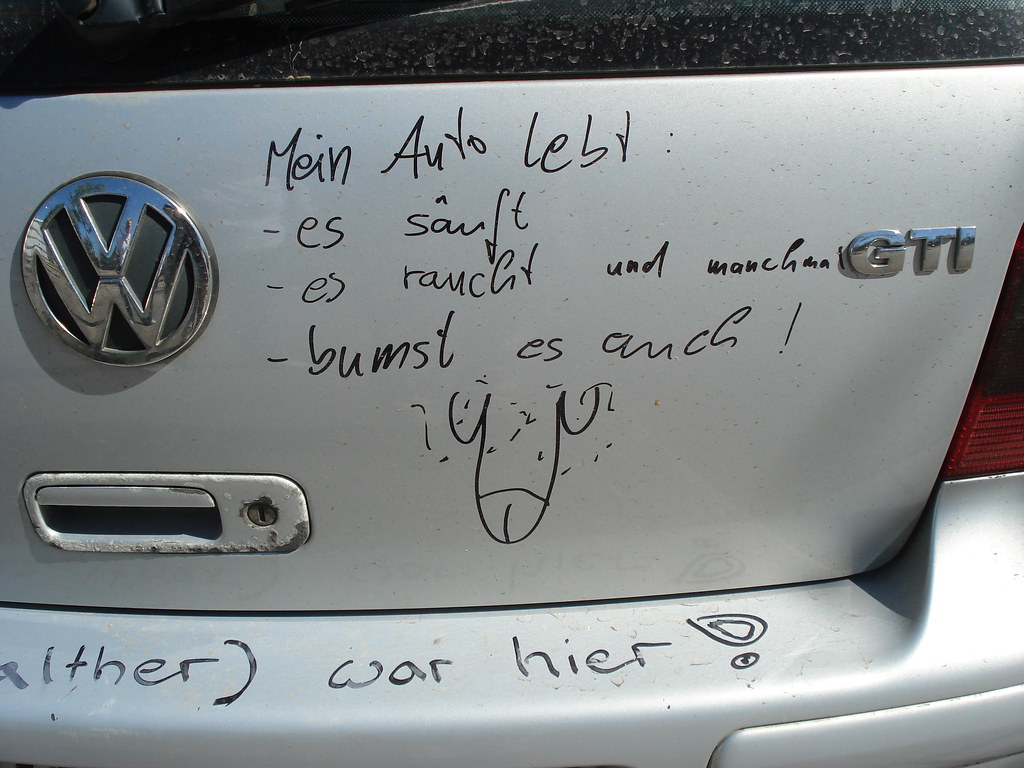 Mein Auto lebt :
- es säuft
- es raucht und manchmal
GTI
- bumst es auch !
alther) war hier !